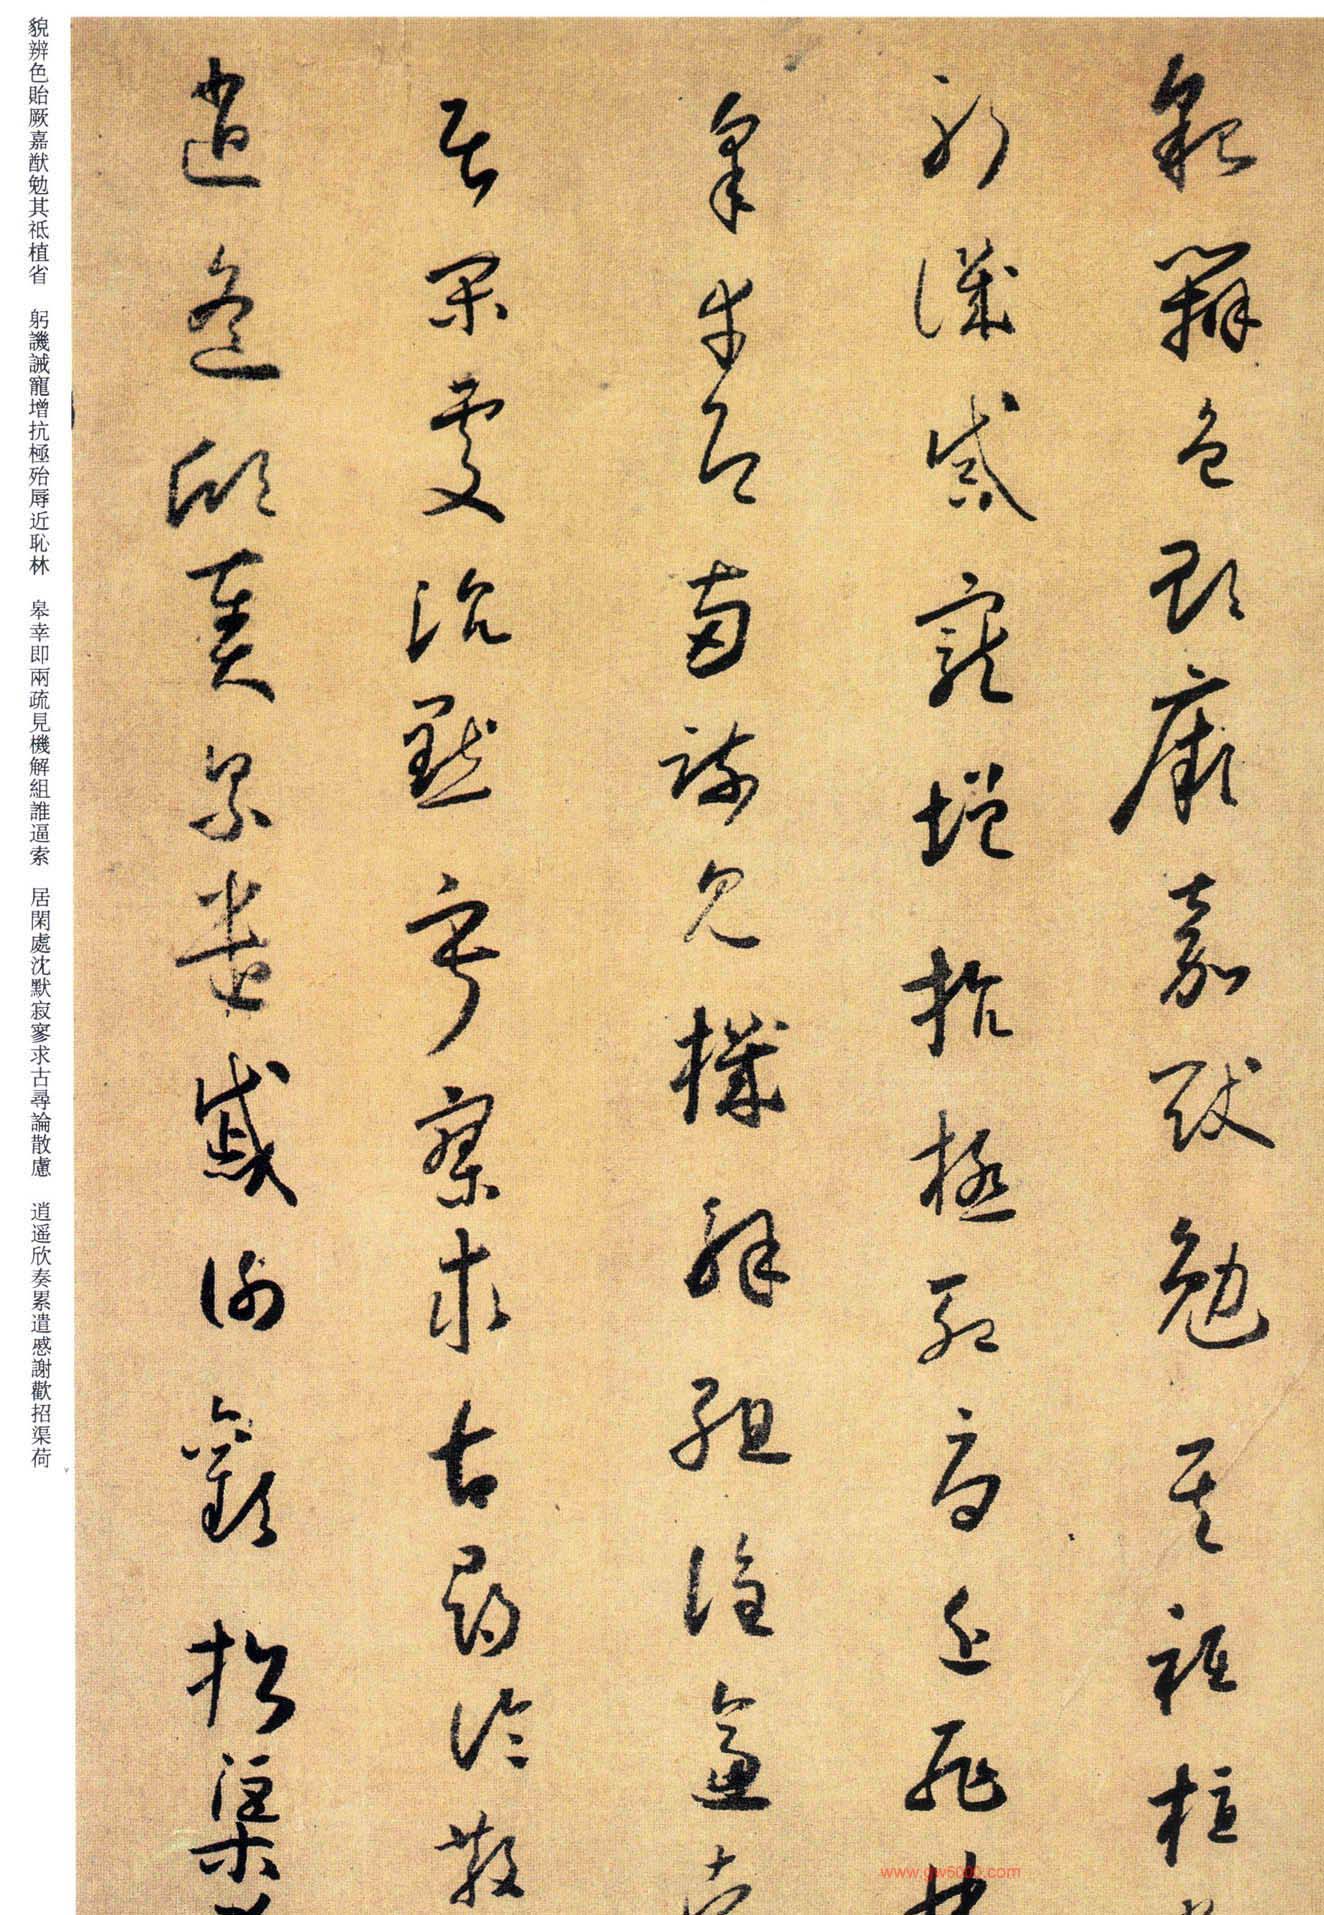 貌辨色貽厥嘉猷勉其祗植
躬譏誡寵增抗極殆辱近恥林
皋幸即兩疏見機解組誰逼索
居閑處沈默寂寥求古尋論散
逍遥欣奏累遣慼謝歡招渠荷
貌辨色貽厥嘉猷勉其祗植省 躬譏誡寵增抗極殆辱近恥林 皋幸即兩疏見機解組誰逼索 居閑處沈默寂寥求古尋論散慮 逍遥欣奏累遣慼謝歡招渠荷